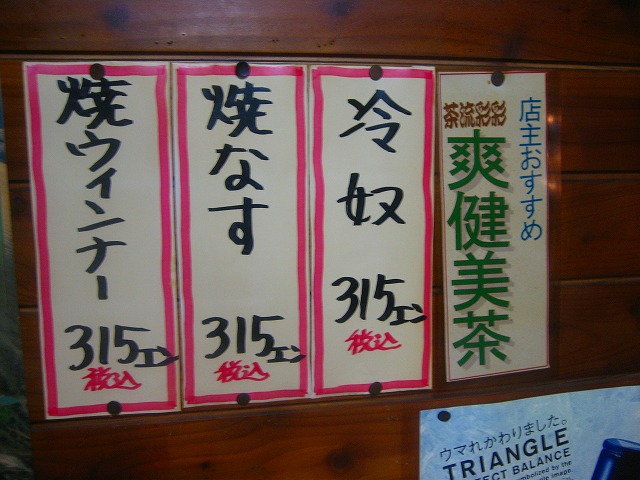 店主おすすめ
茶流彩彩
爽健美茶
冷奴
315エン
税込
焼なす
315エン
税込
焼ウィンナー
315エン
税込
ウマれかわりました。
TRIANGLE
ECT BALANCE
mbolized by the